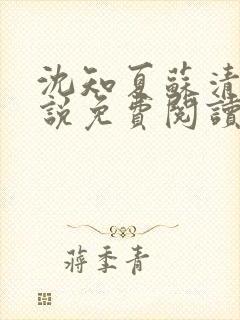 沈知夏蘇清
說免費閱讀
蔣季青